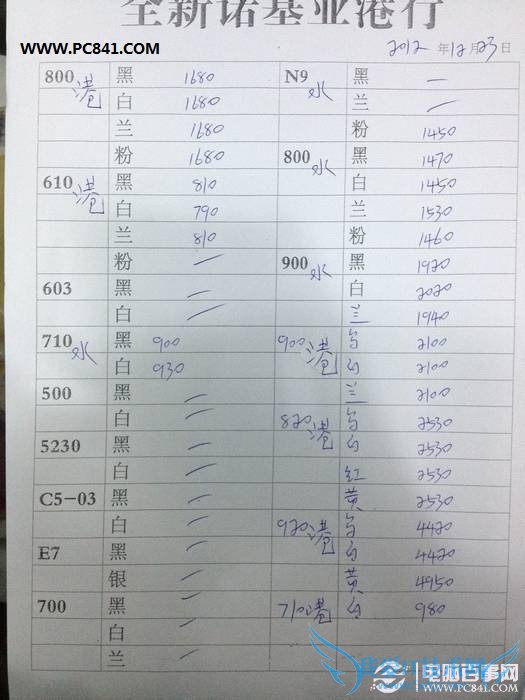 全新诺基亚港行
WWW.PC841.COM
2012 年 12 月 23 日
800 港 黑 1680 N9 水 黑 一
白 1680 兰 一
兰 1680 粉 1450
粉 1680 800 水 黑 1470
610 港 黑 810 白 1450
白 790 兰 1530
兰 810 粉 1460
粉 一 900 水 黑 1920
603 黑 一 白 2020
白 一 兰 1940
710 水 黑 900 900 港 2100
白 930 白 2100
500 黑 一 兰 2100
白 一 820 港 2530
5230 黑 一 白 2530
白 一 红 2530
C5-03 黑 一 黄 2530
白 一 920 港 4420
E7 黑 一 白 4420
银 一 黄 4950
700 黑 一 710 港 白 980
白 一
兰 一
电脑百事网
WWW.PC841.COM